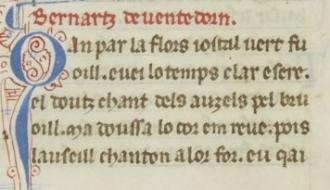 Bernartz deuentedorn.
Qan par la flors iostal uert fu
oill. euei lo temps clar e sere.
el doutz chant dels auzels pel bru
oill. ma doussa lo cor em reue. pois
lauseill chanton a lor for. eu qai